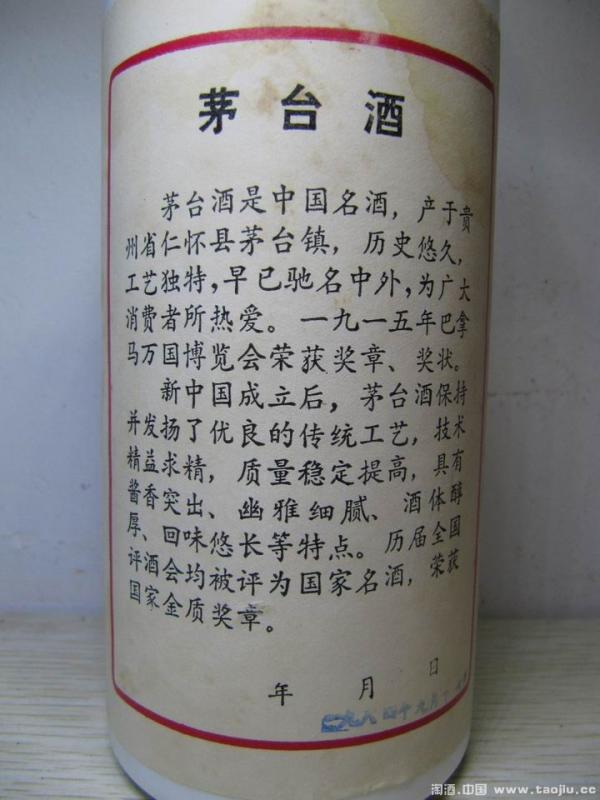 茅台酒
茅台酒是中国名酒，产于贵
州省仁怀县茅台镇，历史悠久，
工艺独特，早已驰名中外，为广大
消费者所热爱。一九一五年巴拿
马万国博览会荣获奖章、奖状。
新中国成立后，茅台酒保持
并发扬了优良的传统工艺，技术
精益求精，质量稳定提高，具有
酱香突出、幽雅细腻、酒体醇
厚、回味悠长等特点。历届全国
评酒会均被评为国家名酒，荣获
国家金质奖章。
年 月 日
一九八四年九月
淘酒.中国 www.taojiu.cc